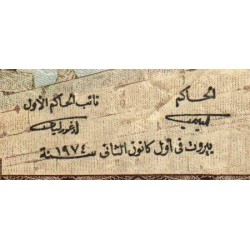 الحاكم
نائب الحاكم الأول
بيروت في أول كانون الثاني سنة ١٩٧٤